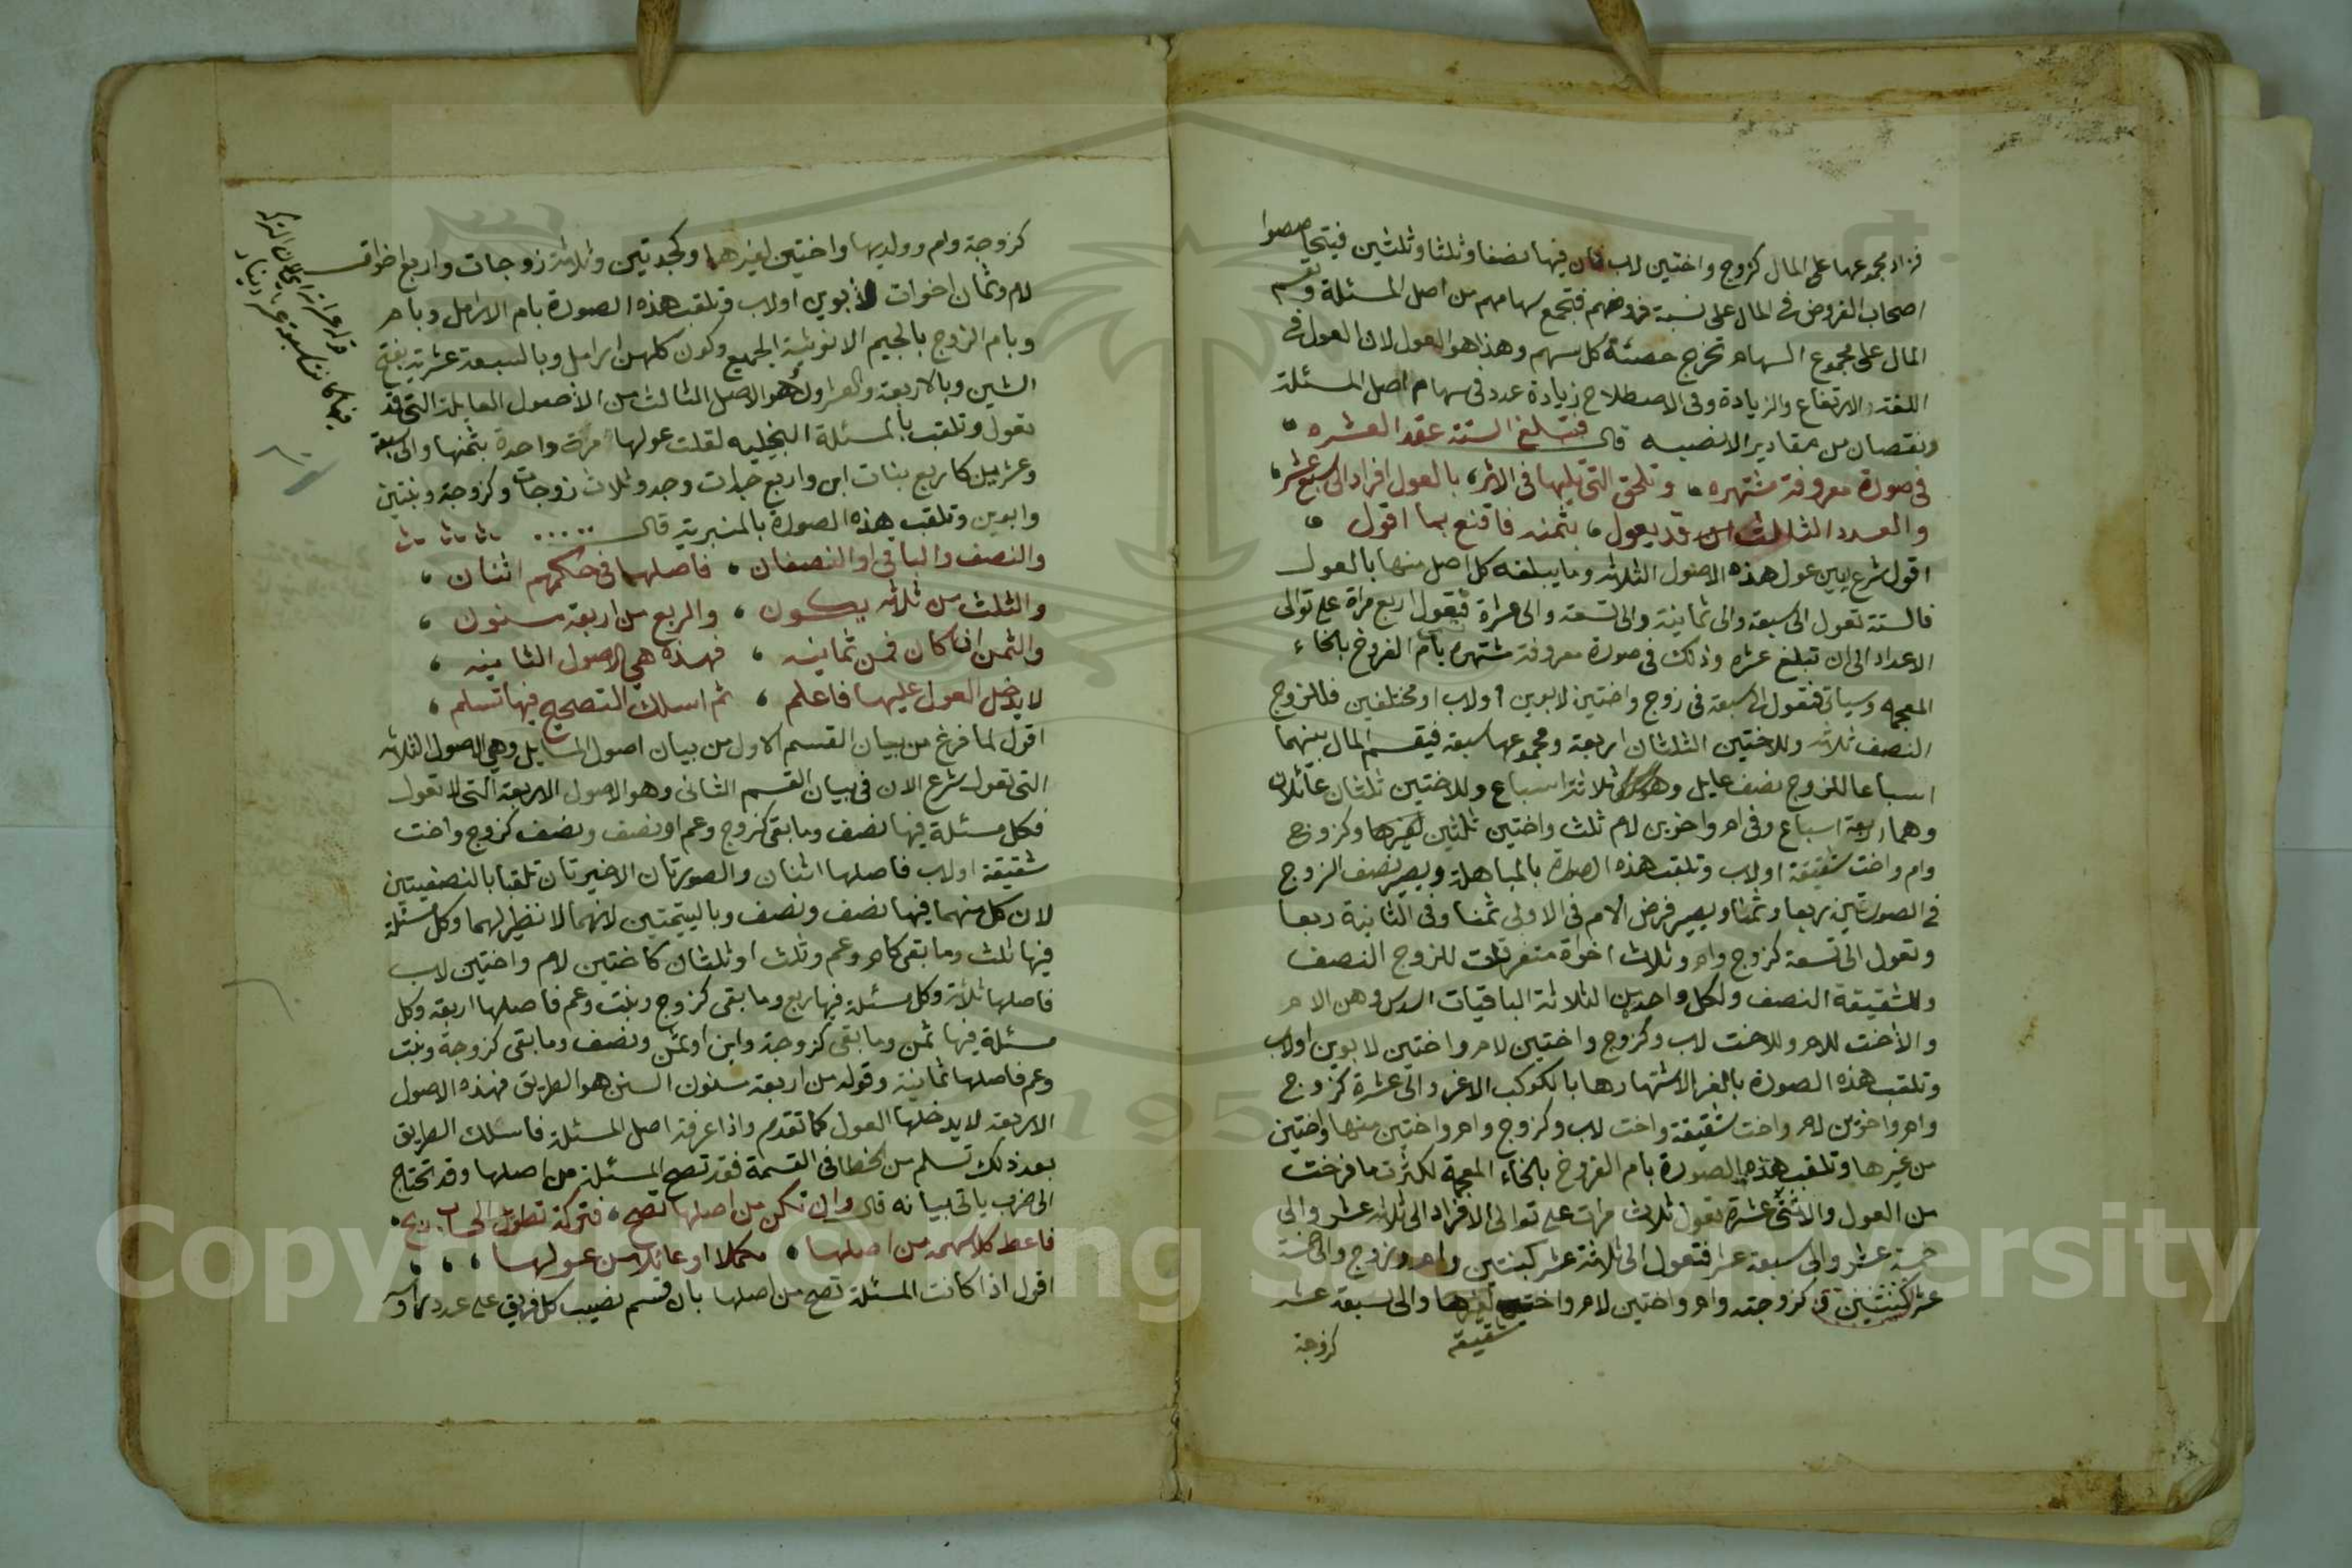 فزاد مجموعها على المال كزوج واختين لاب فان فيها نصفا وثلثا وثلثين فيتحاصصوا
اصحاب الفروض في المال على نسبة فروضهم فتجمع سهامهم من اصل المسئلة وتقسم
المال على مجموع السهام تخرج حصة كل سهم وهذا هو العول لان العول في
اللغة الارتفاع والزيادة وفي الاصطلاح زيادة عدد في سهام اصل المسئلة
ونقصان من مقادير الانصبه قال فتبلغ الستة عقد العشره
في صورة معروفة مشتهره وتلحق التي تليها في الاثر بالعول افرادا الى سبع عشر
والعدد الثالث قد يعول بثمنه فاقنع بما اقول
اقول شرع يبين عول هذه الاصول الثلاثه وما يبلغه كل اصل منها بالعول
فالستة تعول الى سبعة والى ثمانية والى تسعة والى عشرة فتعول اربع مراة على توالي
الاعداد الى ان تبلغ عشره وذلك في صورة معروفة مشتهره بام الفروخ بالخاء
المعجمه وسياتي فتعول الى سبعة في زوج واختين لابوين اولاب او مختلفين فللزوج
النصف ثلاثه وللاختين الثلثان اربعة ومجموعها سبعة فيقسم المال بينهما
اسباعا للزوج نصف عايل وهو ثلاثة اسباع وللاختين ثلثان عائلان
وهما اربعة اسباع وفي ام واخوين لام ثلث واختين ثلثين لغيرها وكزوج
وام واخت شقيقة اولاب وتلقب هذه الصورة بالمباهلة ويصير نصف الزوج
في الصورتين ربعا وثمنا ويصير فرض الام في الاولى ثمنا وفي الثانية ربعا
وتعول الى تسعة كزوج وام وثلاث اخواة متفرقات للزوج النصف
وللشقيقة النصف ولكل واحدة من الثلاثة الباقيات السدس وهن الام
والأخت للام وللاخت لاب وكزوج واختين لام واختين لابوين اولاب
وتلقب هذه الصورة بالغرا لاشتهارها بالكوكب الاغر والى عشرة كزوج
وام واخوين لام واخت شقيقة واخت لاب وكزوج وام واختين منها واختين
من غيرها وتلقب هذه الصورة بام الفروخ بالخاء المعجمة لكثرت ما فرخت
من العول والاثنى عشرة تعول ثلاث مرات على توالي الافراد الى ثلاثة عشر والى
خمسة عشر والى سبعة عشر فتعول الى ثلاثة عشر كبنتين وام وزوج والى خمسة
عشر كبنتين كزوجته وام واختين لام واختين لغيرها والى سبعة عشر
شقيقة
كزوجة
كزوجة وام وولديها واختين لغيرها وكجدتين وثلاث زوجات واربع اخوات
لام وثمان اخوات لأبوين اولاب وتلقب هذه الصورة بام الارامل وبام
وبام الفروج بالجيم الانوثية الجميع وكون كلهن ارامل وبالسبعة عشرية بفتح
الشين وبالاربعة والعشرون هو الاصل الثالث من الأصول العايلة التي قد
تعول وتلقب بالمسئلة البخيليه لقلت عولها مرة واحدة بثمنها والى سبعة
وعشرين كاربع بنات ابن واربع جدات وجد وثلاث زوجات وكزوجة وبنتين
وابوين وتلقب هذه الصورة بالمنبرية قال
والنصف والباقي او النصفان فاصلهما في حكمهم اثنان
والثلث من ثلاثه يكون والربع من اربعة مسنون
والثمن ان كان فمن ثمانيه فهذه هي الاصول الثانيه
لا يدخل العول عليها فاعلم ثم اسلك التصحيح فيها تسلم
اقول لما فرغ من بيان القسم الاول من بيان اصول المسايل وهي الاصول الثلاثه
التي تعول شرع الان في بيان القسم الثاني وهو الاصول الاربعة التي لا تعول
فكل مسئلة فيها نصف وما بقي كزوج وعم او نصف ونصف كزوج واخت
شقيقة اولاب فاصلها اثنان والصورتان الاخيرتان تلقبا بالنصفيتين
لان كل منهما فيها نصف ونصف وباليتيمتين لانهما لا نظير لهما وكل مسئلة
فيها ثلث وما بقي كام وعم وثلث او ثلثان كاختين لام واختين لاب
فاصلها ثلاثة وكل مسئلة فيها ربع وما بقي كزوج وبنت وعم فاصلها اربعة وكل
مسئلة فيها ثمن وما بقي كزوجة وابن او ثمن ونصف وما بقي كزوجة وبنت
وعم فاصلها ثمانية وقوله من اربعة مسنون السنن هو الطريق فهذه الاصول
الاربعة لا يدخلها العول كما تقدم واذا عرفة اصل المسئلة فاسلك الطريق
بعد ذلك تسلم من الخطا في القسمة فقد تصح المسئلة من اصلها وقد تحتاج
الى ضرب ياتي بيانه قال وان تكن من اصلها تصح فتركة تطول الحساب ربح
فاعط كلا سهمه من اصلها مكملا او عائلا من عولها
اقول اذا كانت المسئلة تصح من اصلها بان قسم نصيب كل فريق على عدد رؤسه